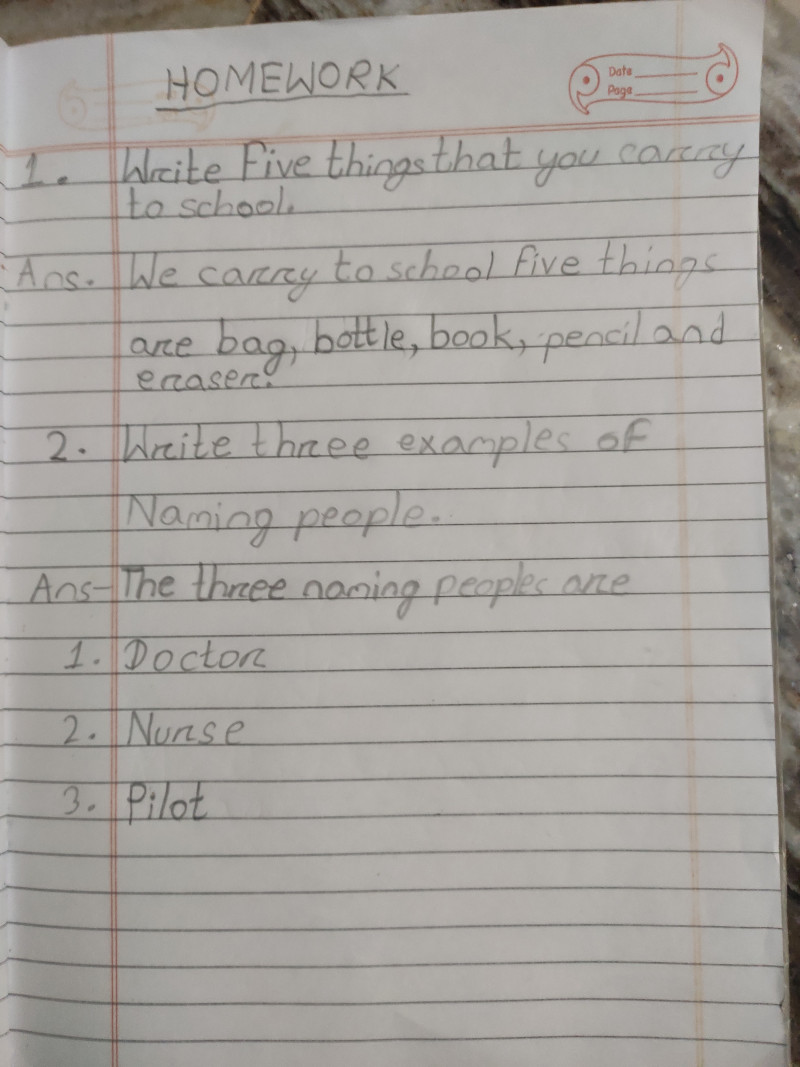 HOMEWORK
Date
Page
1. Write Five things that you carry
to school.
Ans. We carry to school five things
are bag, bottle, book, pencil and
eraser.
2. Write three examples of
Naming people.
Ans- The three naming peoples are
1. Doctor
2. Nurse
3. Pilot